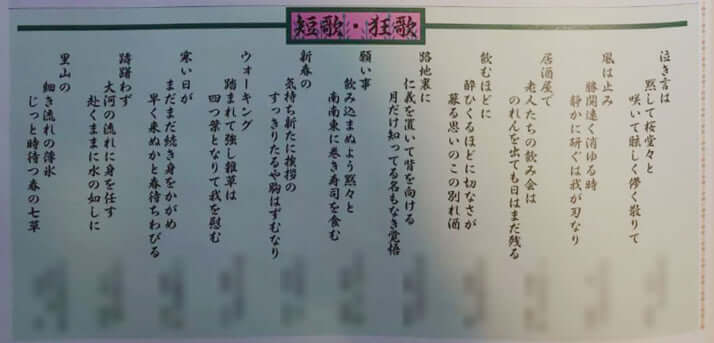 短歌・狂歌
泣き言は
黙して桜堂々と
咲いて眩しく儚く散りて
風は止み
勝鬨遠く消ゆる時
静かに研ぐは我が刃なり
居酒屋で
老人たちの飲み会は
のれんを出ても日はまだ残る
飲むほどに
酔ひくるほどに切なさが
募る思いのこの別れ酒
路地裏に
仁義を置いて背を向ける
月だけ知ってる名もなき覚悟
願い事
飲み込まぬよう黙々と
南南東に巻き寿司を食む
新春の
気持ち新たに挨拶の
すっきりたるや胸はずむなり
ウォーキング
踏まれて強し雑草は
四つ葉となりて我を慰む
寒い日が
まだまだ続き身をかがめ
早く来ぬかと春待ちわびる
躊躇わず
大河の流れに身を任す
赴くままに水の如しに
里山の
細き流れの薄氷
じっと時待つ春の七草